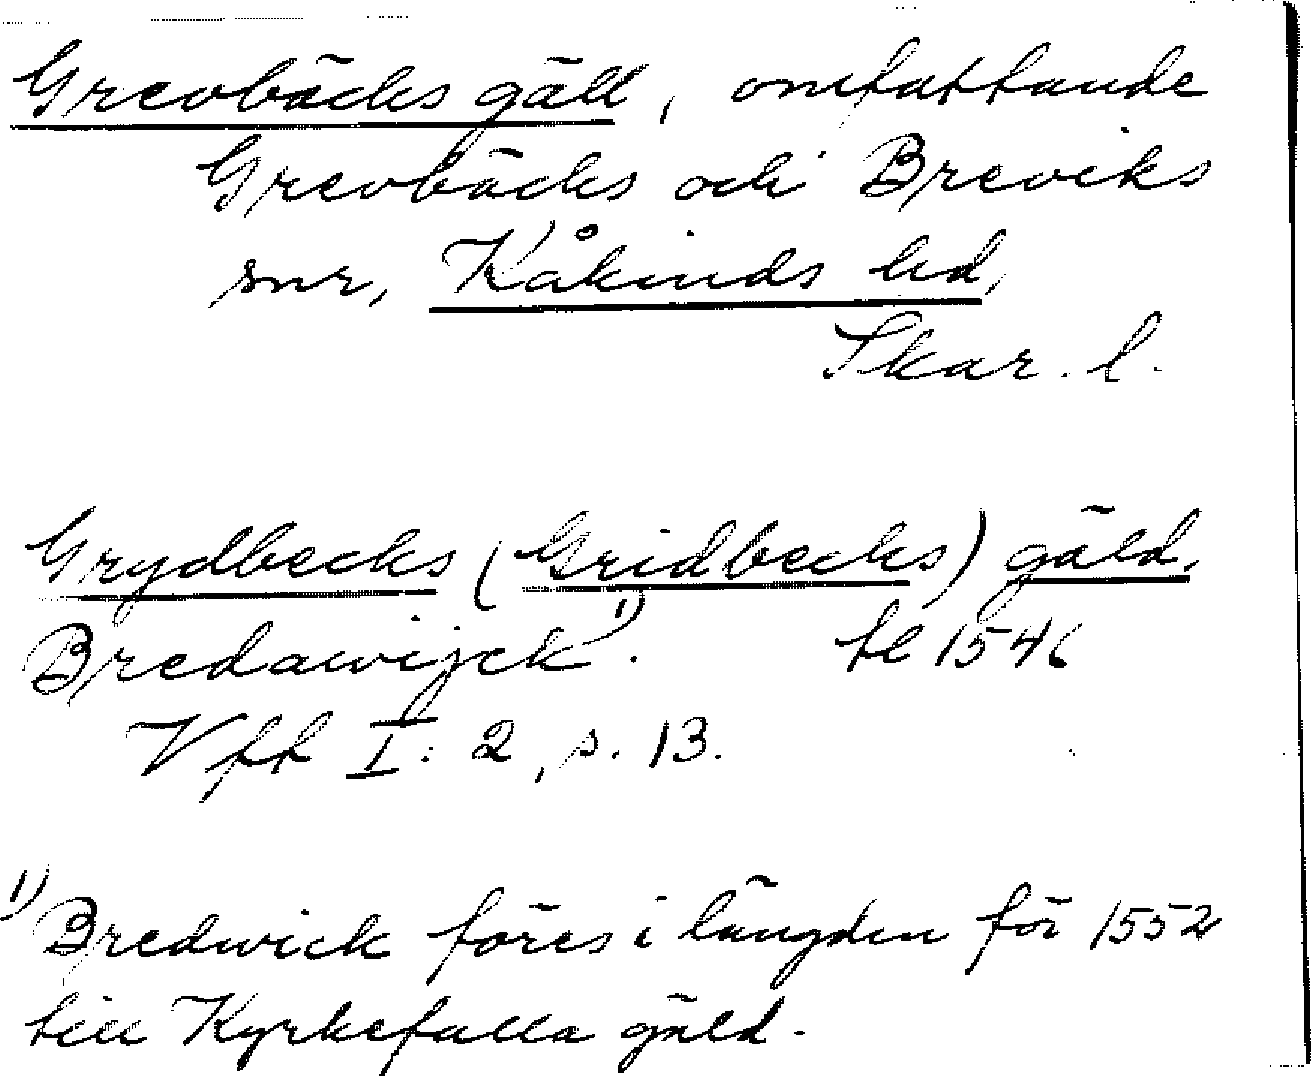 Grevbäcks gäll, omfattande
Grevbäcks och Breviks
snr, Kåkinds hd,
Skar. l.
Grydbecks (Gridbecks) gäld.
Bredawijck 1). tl 1546
Vff I: 2, s. 13.
1) Bredwick föres i längden för 1552
till Kyrkefalla gäld.